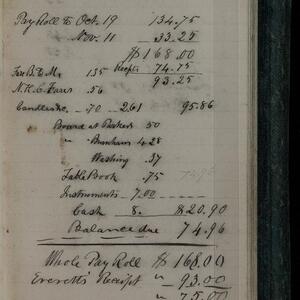 Pay Roll to Oct. 19 134.75
Nov. 11 33.25
$168.00
Fare B. to M. 1.35 Receipts 74.75
N.H. & Fares .56 93.25
Candles &c. .70 2.61 95.86
Board at Parkers 50
" Burnham 4.28
Washing .37
Table Book .75
Instruments 7.00
Cash 8. $20.90
Balance due 74.96
Whole Pay Roll $168.00
Everett's Receipt " 93.00
" 75.00